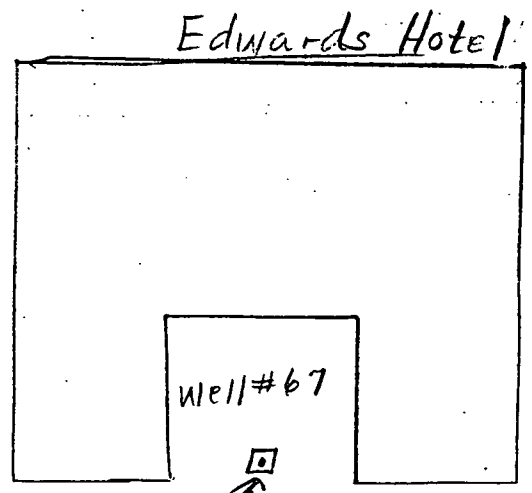 Edwards Hotel
Well #67